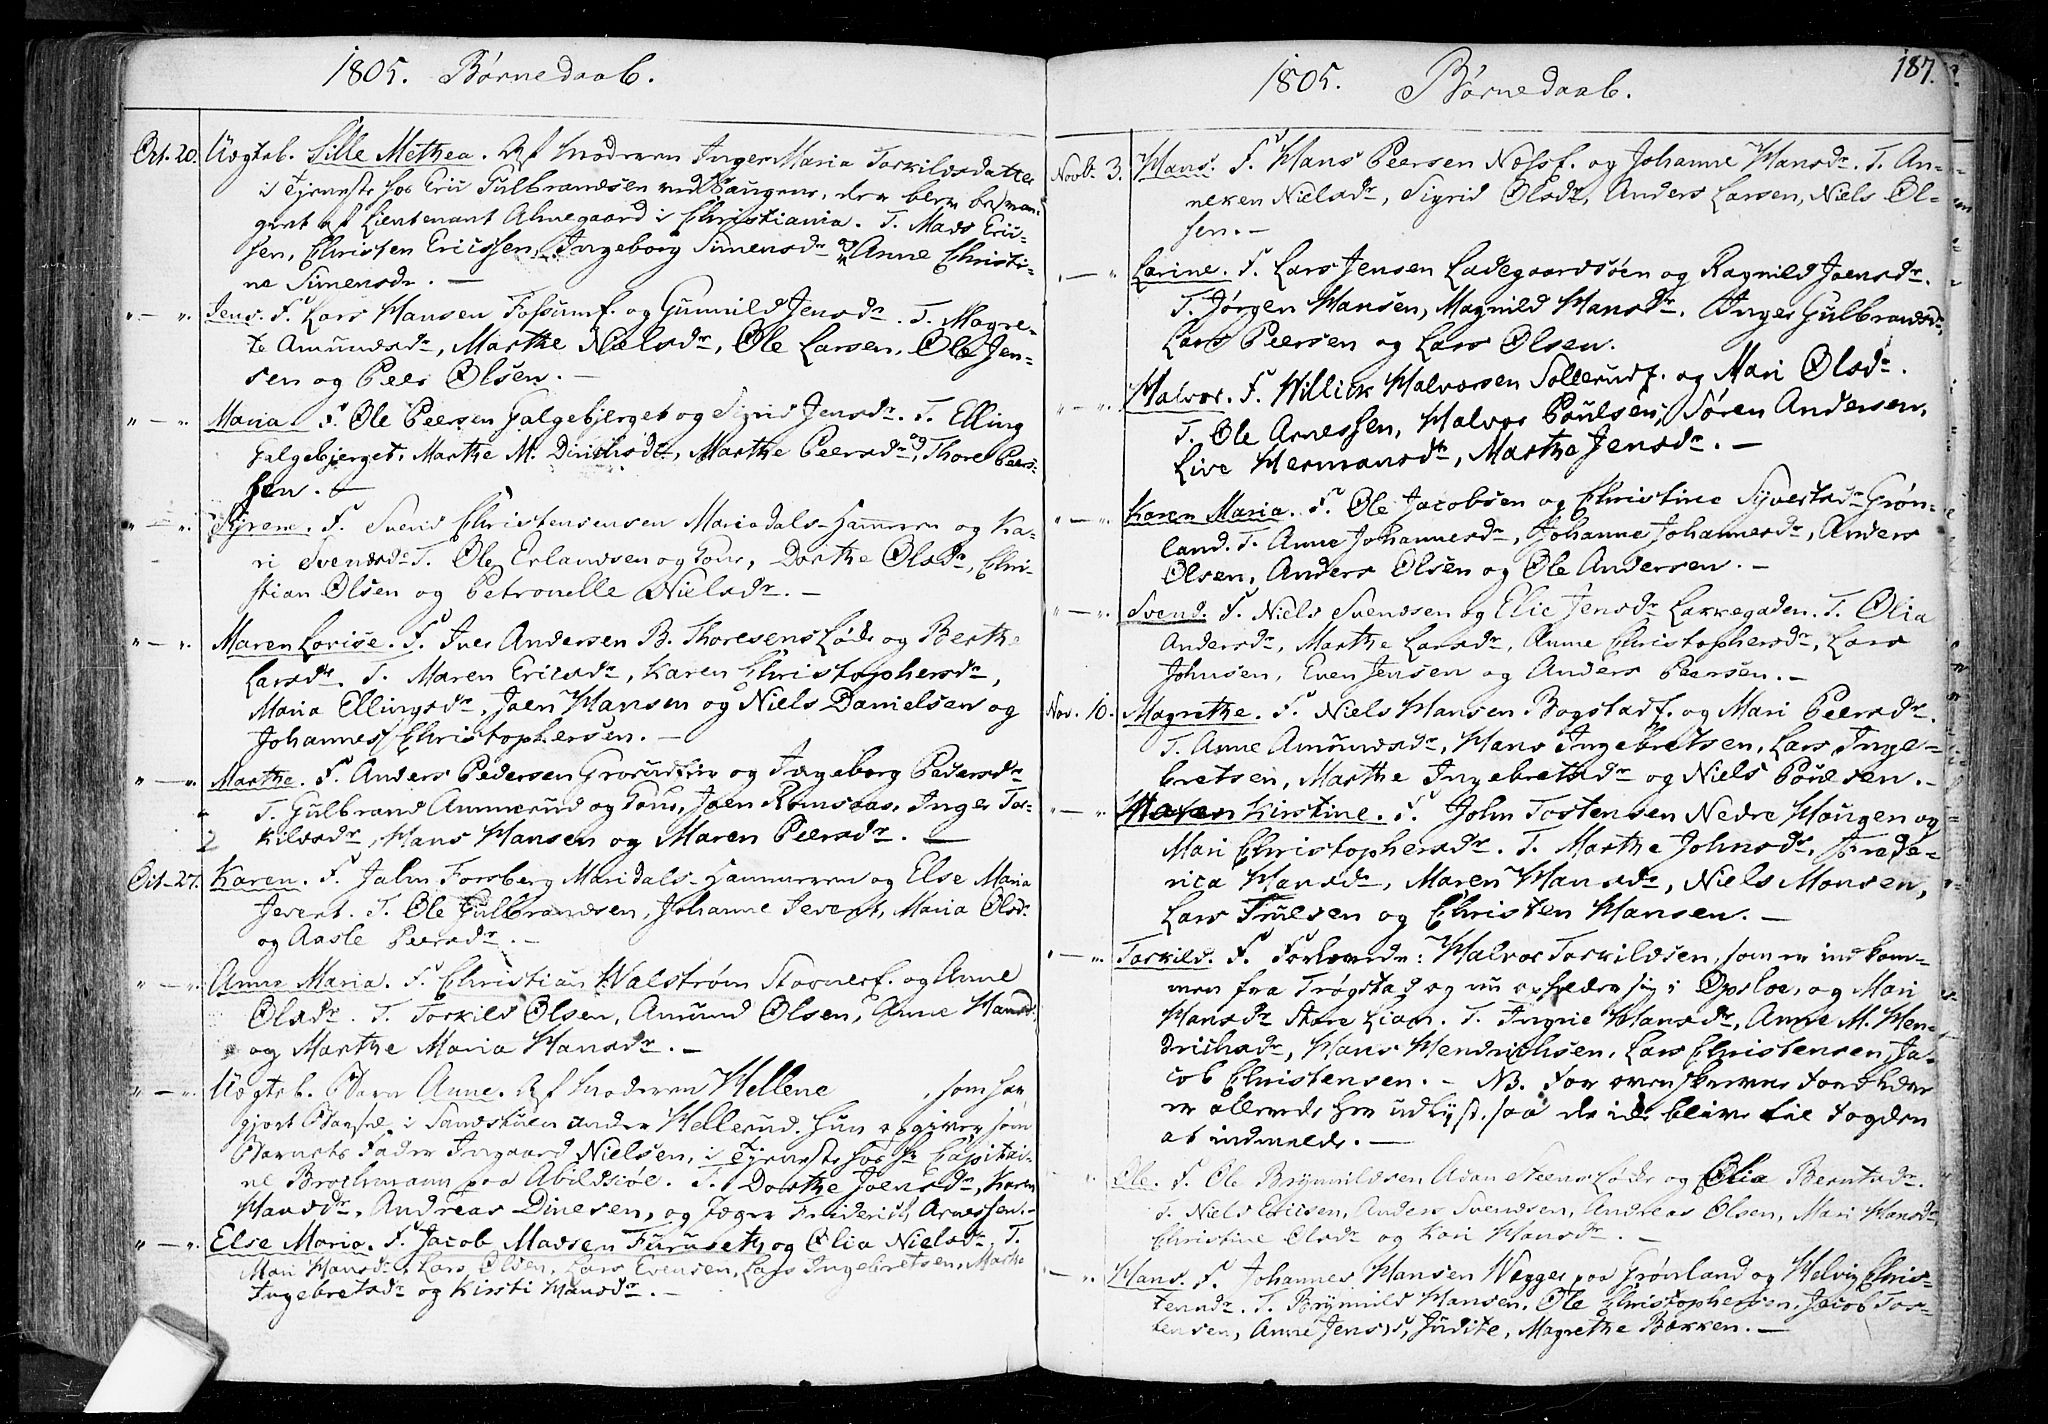 1805. Børnedaab.
Oct. 20. Uægteb. Sille Methea. Af Moderen Inger Maria Torkildsdatter
i Tjeneste hos Eric Gulbrandsen ved Haugen, der blev besvan-
gret af Lieutenant Almegaard i Christiania. T. Mads Eric-
sen, Christen Ericssen, Ingeborg Simensdr og Anne Christi-
ne Simensdr. —
" — ". Jens. F. Lars Hansen Fossumf. og Gunnild Jensdr. T. Magre-
te Amundsdr, Marthe Nielsdr, Ole Larsen, Ole Jen-
sen og Peer Olsen. —
" — ". Maria. F. Ole Peersen Galgebjerget og Sigrid Jensdr. T. Elling
Galgebjerget, Marthe M. Dinichsdr, Marthe Peersdr, og Thore Peer-
sen. —
" — ". Syrene. F. Svend Christensensen Mariadals-Hammeren og Ka-
ri Svendsdr T. Ole Erlandsen og Kone, Dorthe Olsdr, Chri-
stian Olsen og Petronelle Nielsdr. —
" — ". Maren Lovise. F. Iver Andersen B. Thoresens Løkke og Berthe
Larsdr. T. Maren Ericsdr, Karen Christophersdr,
Maria Ellingsdr, Joen Hansen og Niels Danielsen og
Johannes Christophersen. —
" — ". Marthe. F. Anders Pedersen Grorudeie og Ingeborg Pedersdr
T. Gulbrand Ammerud og Kone, Joen Romsaas, Inger Tor-
kildsdr, Hans Hansen og Maren Peersdr. —
Oct. 27. Karen. F. John Forsberg Maridals-Hammeren og Else Maria
Jevert. T. Ole Gulbrandsen, Johanne Jevert, Maria Olsdr
og Aasle Peersdr. —
" — ". Anne Maria. F. Christian Walstrøm Stovnerf. og Anne
Olsdr. T. Torkild Olsen, Amund Olsen, Anne Hansdr
og Marthe Maria Hansdr. —
" — ". Uægteb. Barn Anne. Af Moderen Hellene , som har
gjort Barsel i Sandstuen under Hellerud. Hun opgiver som
Barnets Fader Ingaard Nielsen, i Tjeneste hos Hr Capitai-
ne Brochmann paa Abildsiøe. T. Dorthe Joensdr, Karen
Hansdr, Andreas Dinesen, og Jæger Friderich Arnessen. —
" — ". Else Maria. F. Jacob Madsen Furuseth og Olia Nielsdr. T.
Mari Hansdr, Lars Olsen, Lars Evensen, Lars Ingebretsen, Marthe
Ingebretsdr og Kirsti Hansdr. —
1805. Børnedaab. 187.
Novb. 3. Hans. F. Hans Peersen Nøssf. og Johanne Hansdr. T. An-
neken Nielsdr, Sigrid Olsdr, Anders Larsen, Niels Ol-
sen. —
" — " Larine. F. Lars Jensen Ladegaardsøen og Ragnild Joensdr.
T. Jørgen Hansen, Magnild Hansdr, Inger Gulbrandsdr,
Lars Peersen og Lars Olsen.
" — ". Halvor. F. Willick Halvorsen Sollerudf. og Mari Olsdr.
T. Ole Arnessen, Halvor Poulsen, Søren Andersen,
Live Hermansdr, Marthe Jensdr. —
" — " Karen Maria. F. Ole Jacobsen og Christine Syvertsdr Grøn-
land. T. Anne Johannesdr, Johanne Johannesdr, Anders
Olsen, Anders Olsen og Ole Andersen. —
" — ". Svend. F. Niels Svendsen og Elie Jensdr Lakkegaden. T. Olia
Andersdr, Marthe Larsdr, Anne Christophersdr, Lars
Johnsen, Even Jensen og Anders Peersen. —
Nov. 10. Magrethe. F. Niels Hansen Bogstadf. og Mari Peersdr.
T. Anne Amundsdr, Hans Ingebretsen, Lars Inge-
bretsen, Marthe Ingebretsdr og Niels Poulsen. —
" — " Maren Kirstine. F. John Tostensen Nedre Haugen og
Mari Christophersdr. T. Marthe Johnsdr, Frede-
rica Hansdr, Maren Hansdr, Niels Monsen,
Lars Trulsen og Christen Hansen. —
" — " Torkild. F. Forlovede: Halvor Torkildsen, som er indkom-
men fra Trøgstad og nu opholder sig i Opsloe, og Mari
Hansdr Store Lian. T. Ingrie Hansdr, Anne M. Hen-
drichsdr, Hans Hendrichsen, Lars Christensen, Ja-
cob Christensen. — NB. For ovenskrevne Forældre
er allerede her udlyst, saa de ikke blive til Fogden
at indmelde. —
" Ole. F. Ole Brynnildsen Adansteens Løkke og Olia Berntsdr.
T. Niels Ericsen, Anders Svendsen, Andreas Olsen, Mari Hansdr,
Christine Olsdr og Kari Hansdr. —
— " Hans. F. Johannes Hansen Vægger paa Grønland og Helvig Chris-
tensdr. T. Brynnild Hansen, Ole Christophersen, Jacob Tor-
tensen, Anne Jensdr, Judite, Magrethe Bakken. —